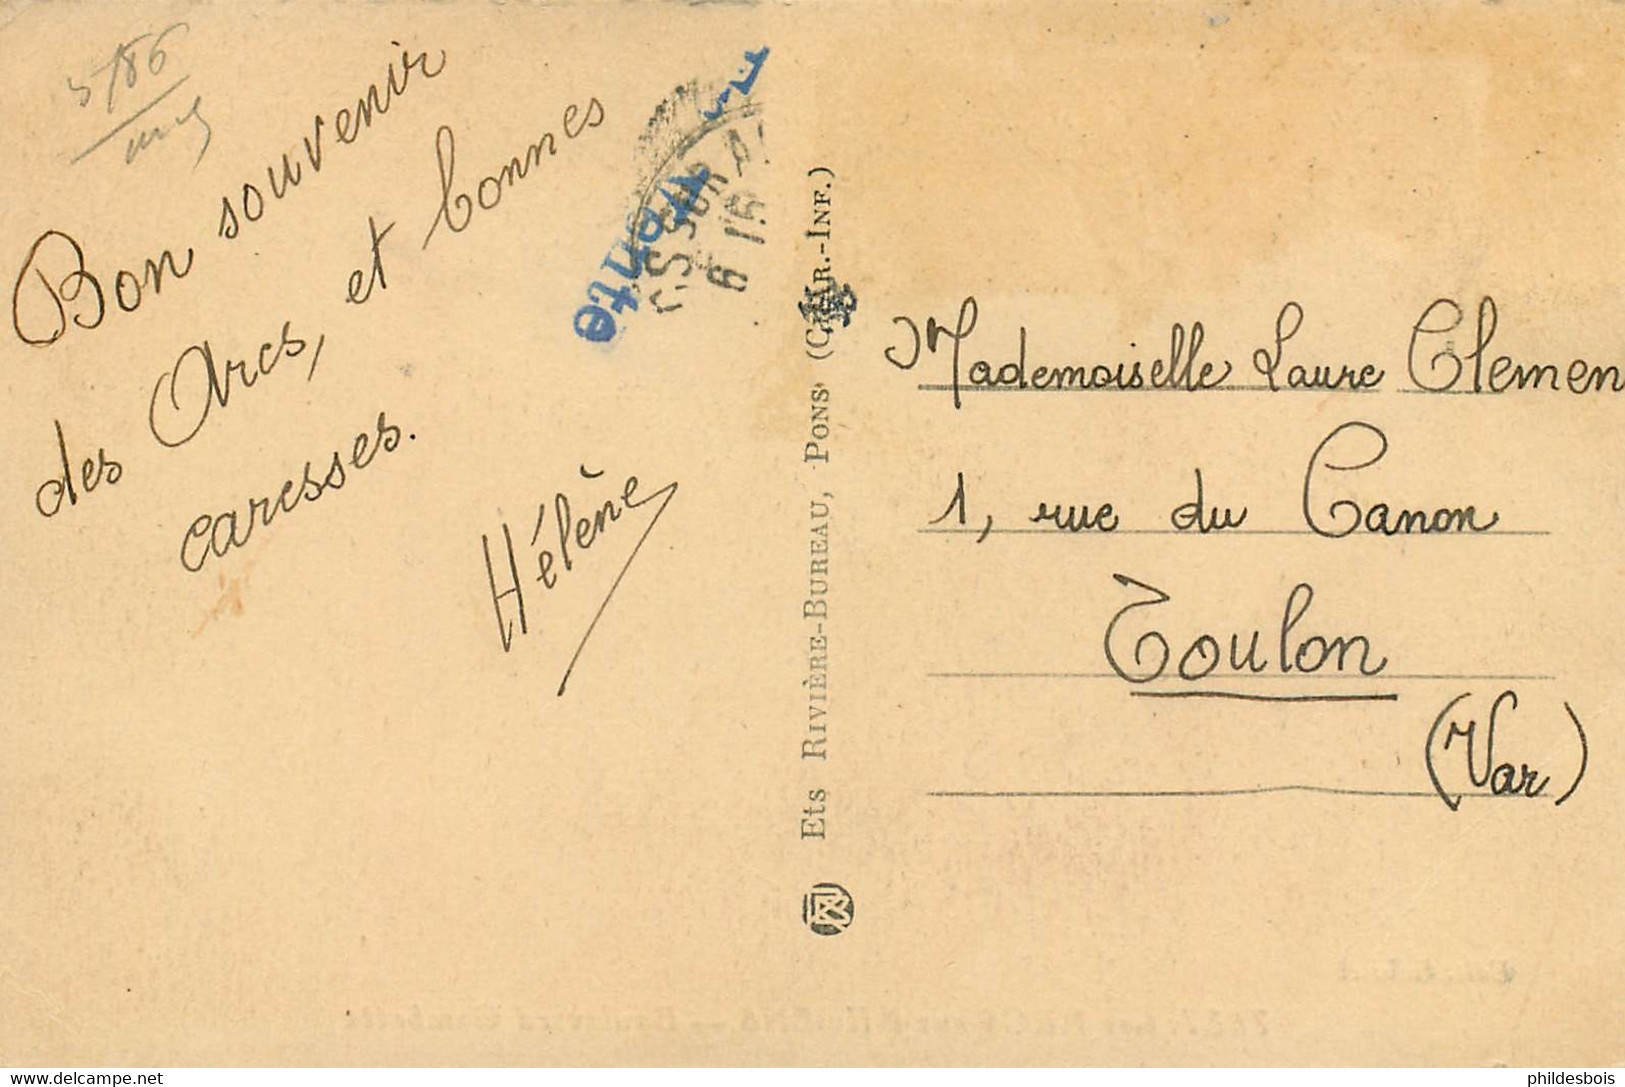 5/86
Bon souvenir
des Arcs, et bonnes
caresses.
Hélène
Vente
C.S SUR A
6 15
Ets Rivière-Bureau, Pons (Char.-Inf.)
Mademoiselle Laure Clemen
1, rue du Canon
Toulon
(Var)
phildesbois